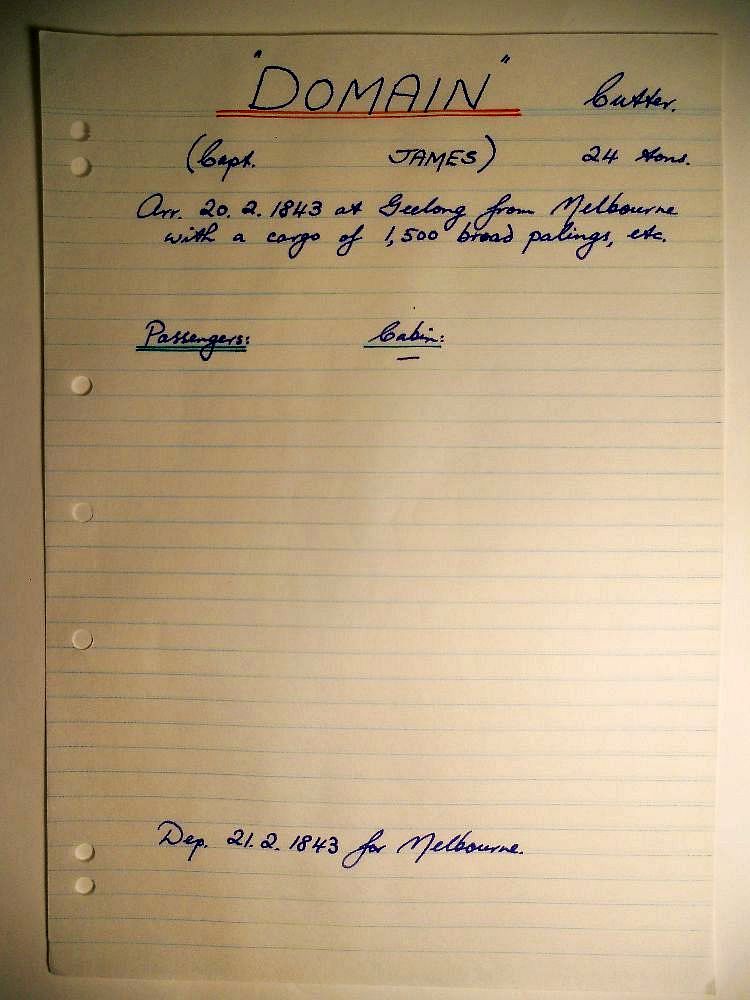 "DOMAIN" Cutter.
(Capt. JAMES) 24 tons.
Arr. 20.2.1843 at Geelong from Melbourne
with a cargo of 1,500 broad palings, etc.
Passengers: Cabin:
—
Dep. 21.2.1843 for Melbourne.